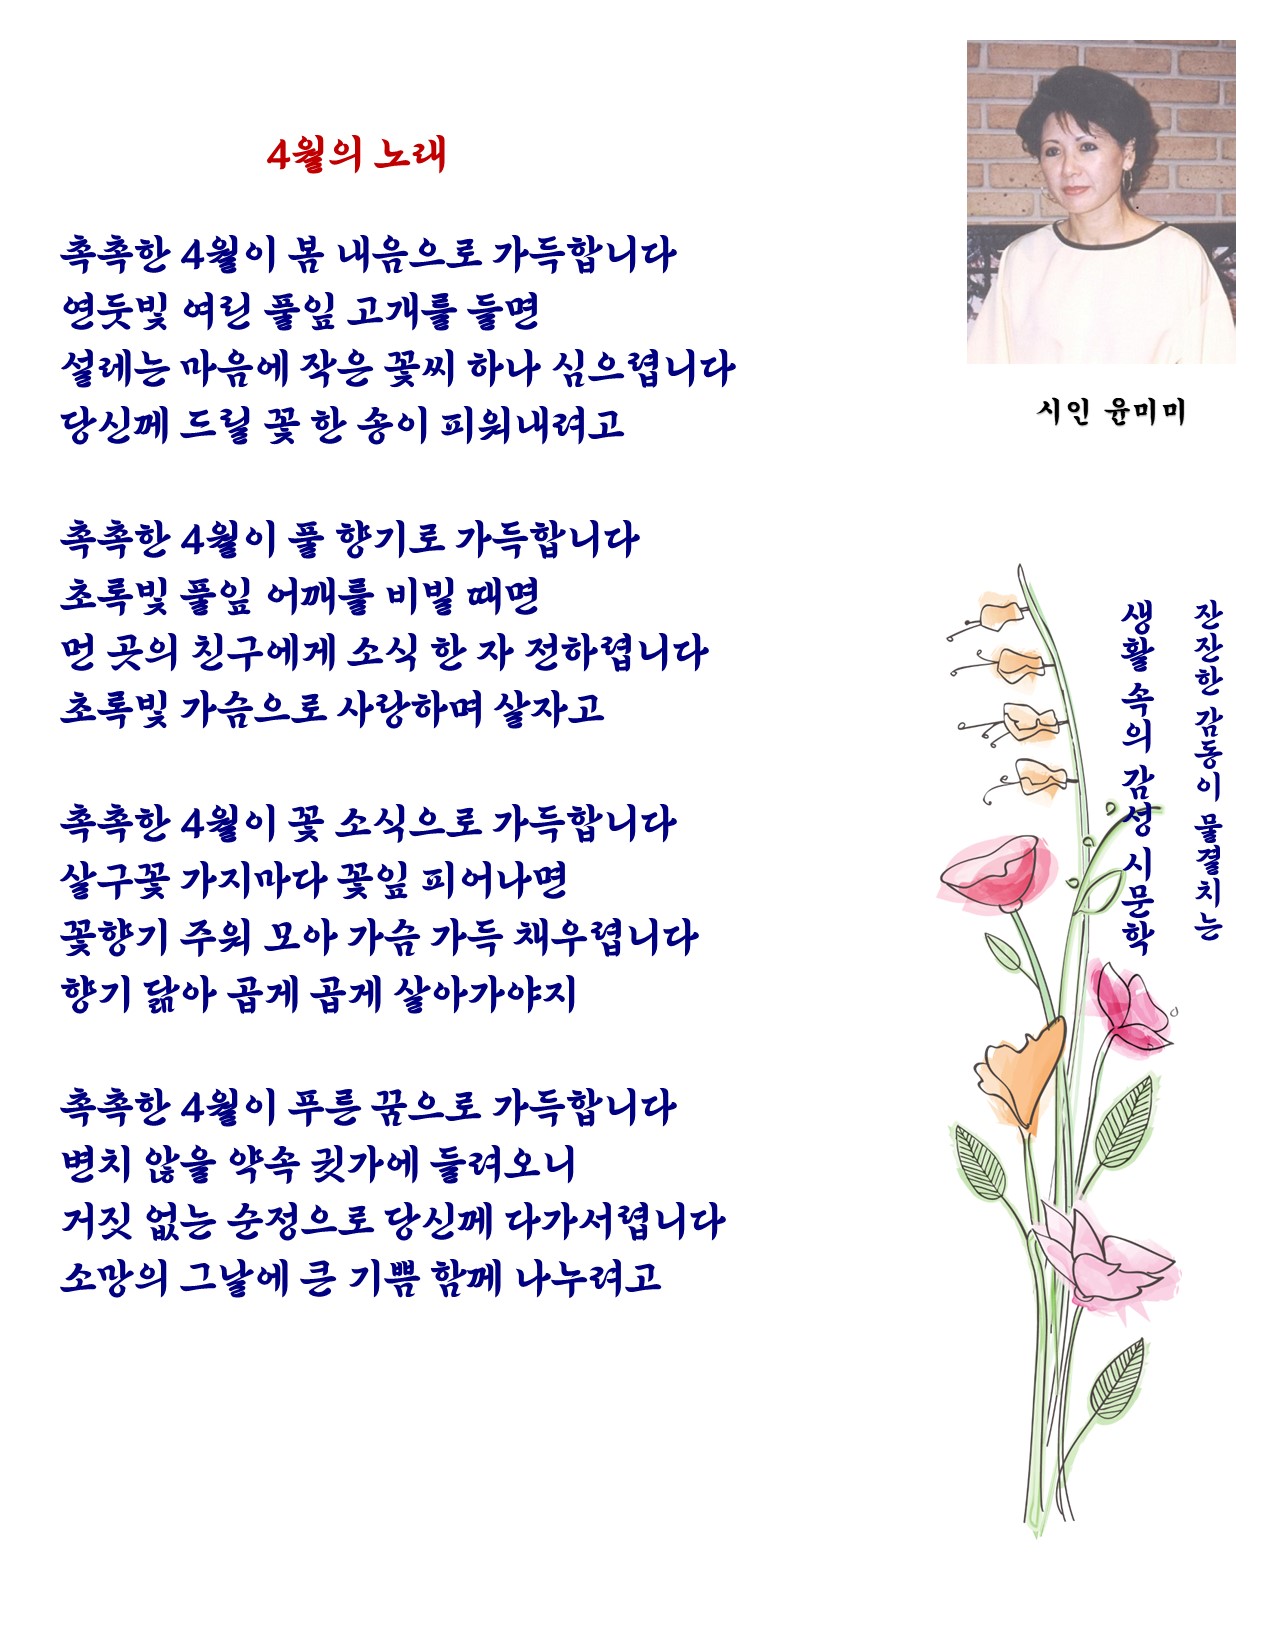 4월의 노래
촉촉한 4월이 봄 내음으로 가득합니다
연둣빛 여린 풀잎 고개를 들면
설레는 마음에 작은 꽃씨 하나 심으렵니다
당신께 드릴 꽃 한 송이 피워내려고
촉촉한 4월이 풀 향기로 가득합니다
초록빛 풀잎 어깨를 비빌 때면
먼 곳의 친구에게 소식 한 자 전하렵니다
초록빛 가슴으로 사랑하며 살자고
촉촉한 4월이 꽃 소식으로 가득합니다
살구꽃 가지마다 꽃잎 피어나면
꽃향기 주워 모아 가슴 가득 채우렵니다
향기 닮아 곱게 곱게 살아가야지
촉촉한 4월이 푸른 꿈으로 가득합니다
변치 않을 약속 귓가에 들려오니
거짓 없는 순정으로 당신께 다가서렵니다
소망의 그날에 큰 기쁨 함께 나누려고
시인 윤미미
잔잔한 감동이 물결치는
생활 속의 감성 시문학